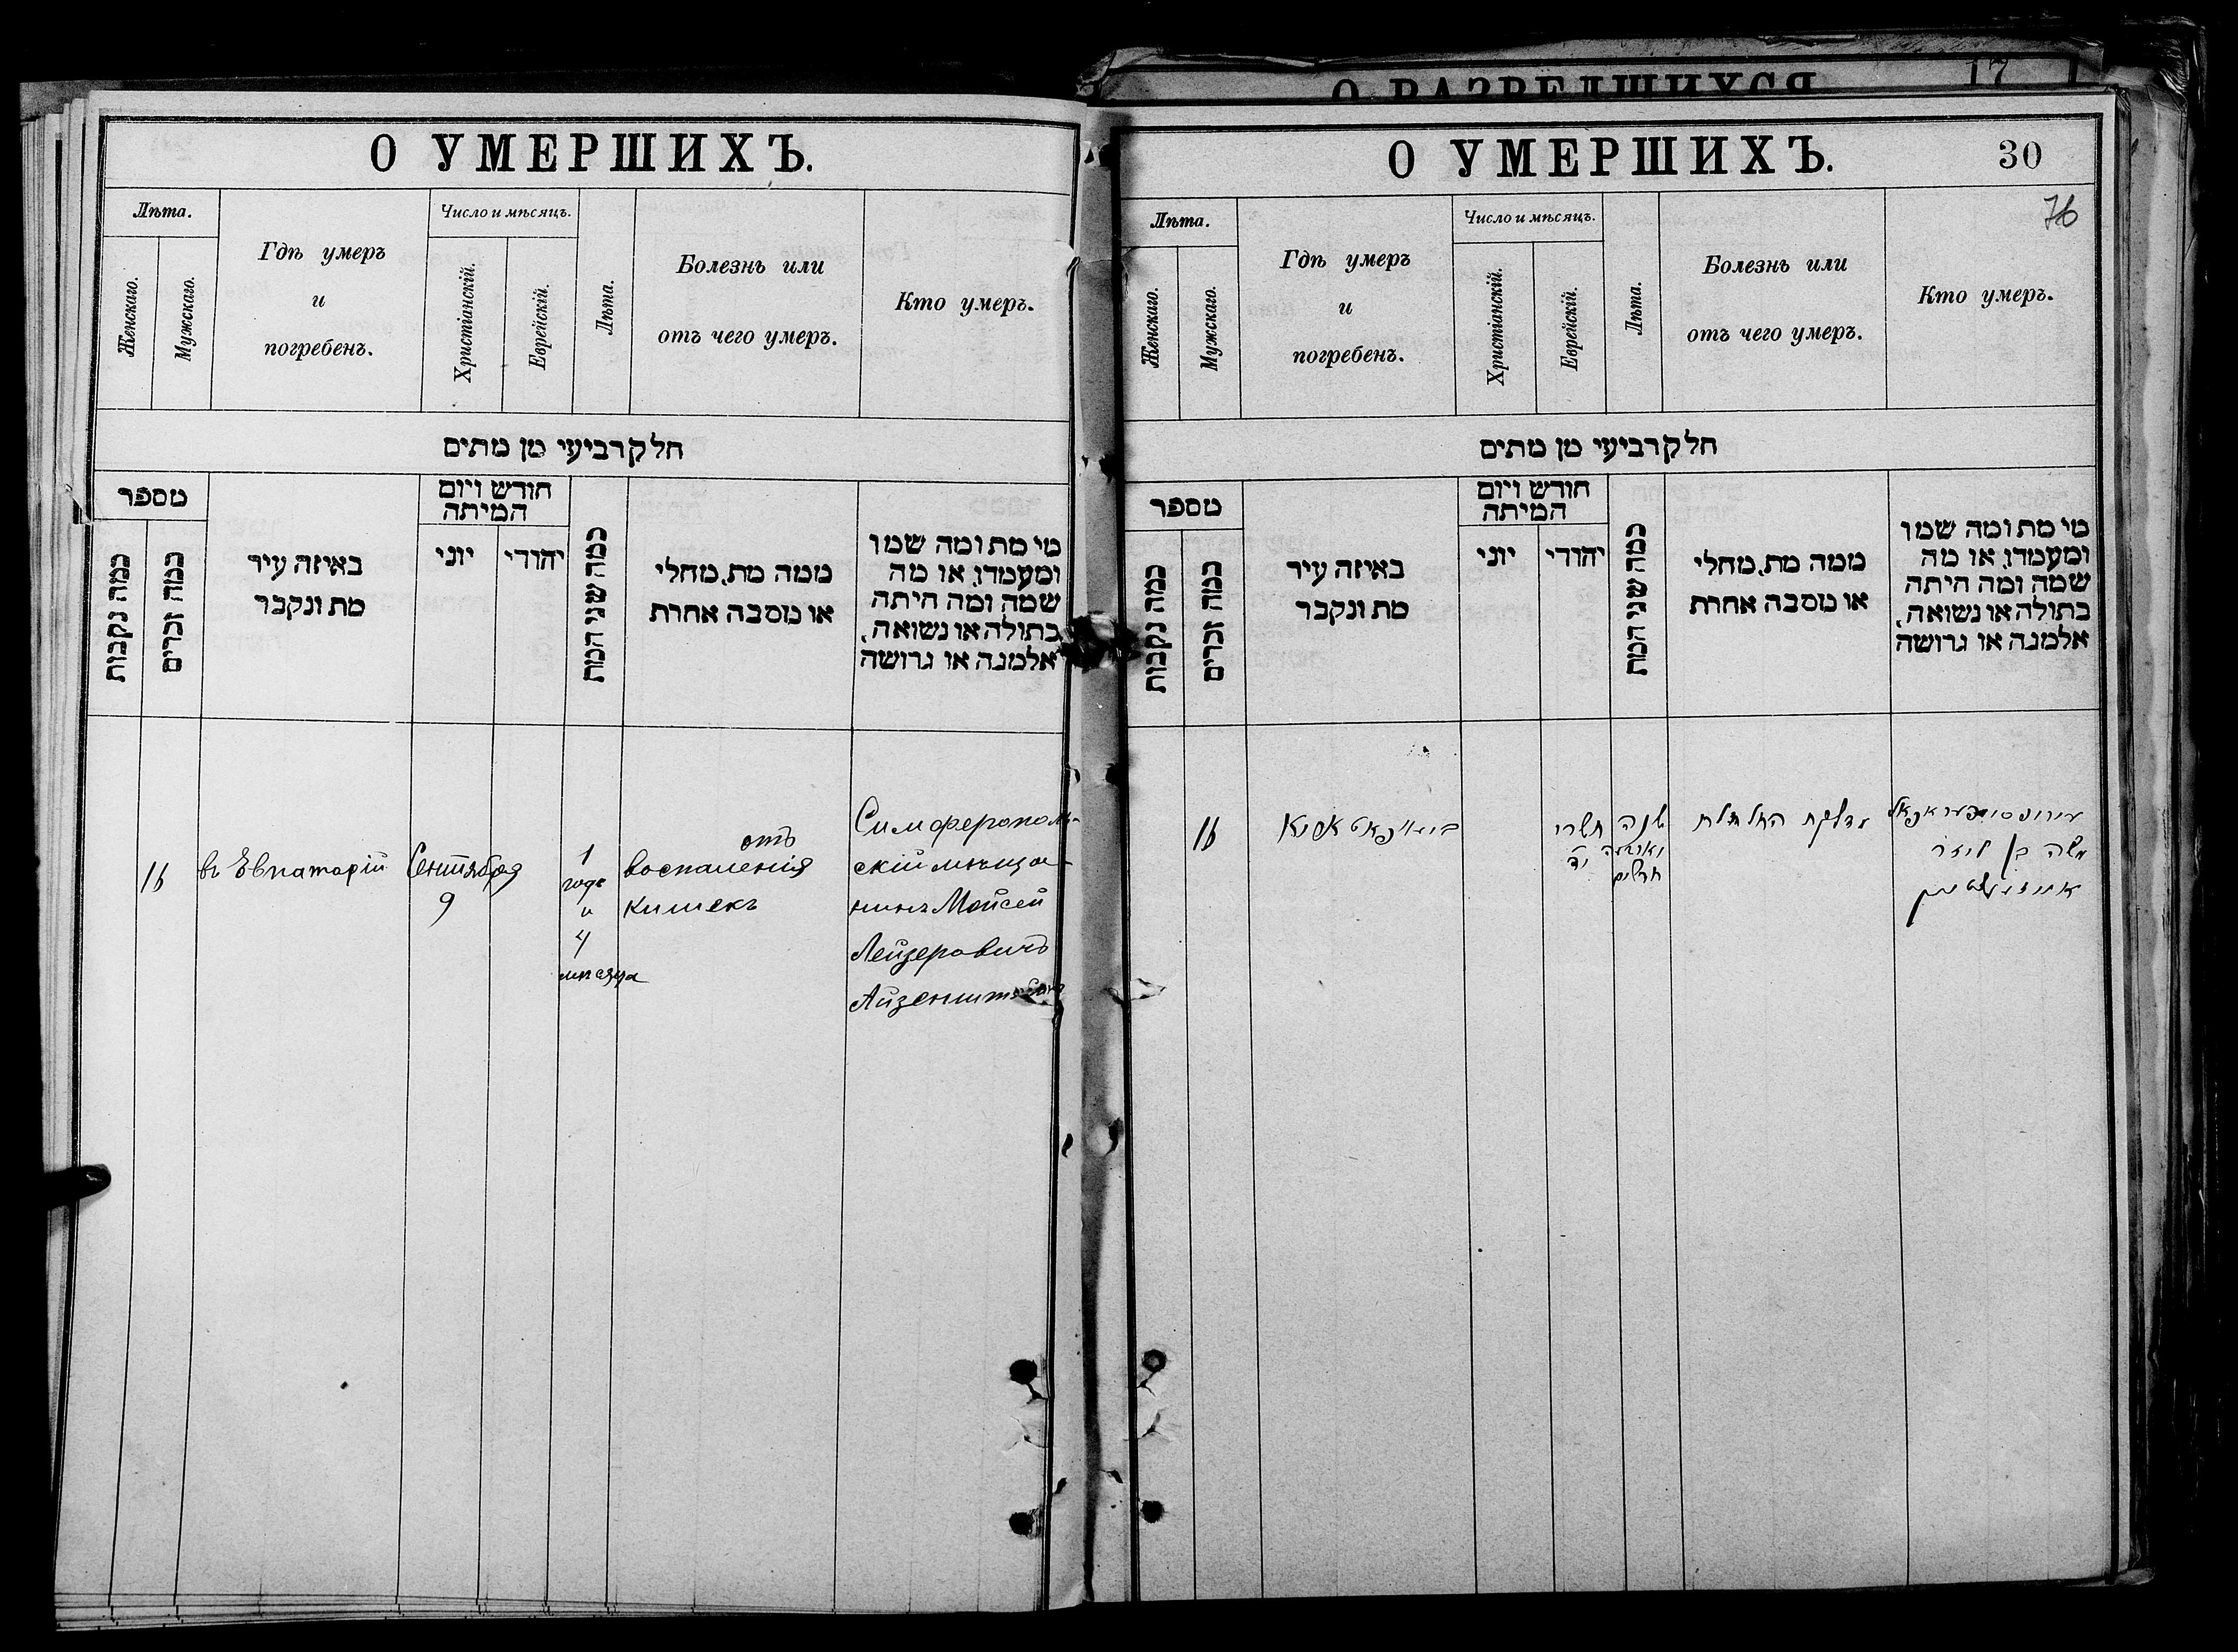 О РАЗВЕДШИХСЯ 17
О УМЕРШИХЪ.
Лѣта.
Женскаго.
Мужскаго.
Гдѣ умеръ
и
погребенъ.
Число и мѣсяцъ.
Христіанскій.
Еврейскій.
Лѣта.
Болезнь или
отъ чего умеръ.
Кто умеръ.
חלק רביעי מן מתים
מספר
כמה נקבות
כמה זכרים
באיזה עיר
מת ונקבר
חודש ויום
המיתה
יוני
יהודי
כמה שני המת
ממה מת, מחלי
או מסבה אחרת
מי מת ומה שמו
ומעמדו, או מה
שמה ומה היתה
בתולה או נשואה,
אלמנה או גרושה
16
въ Евпаторіи
Сентября
9
1
года
и
4
мѣсяца
отъ
воспаленія
кишекъ
Симферополь-
скій мѣща-
нинъ Мойсей
Лейзеровичъ
Айзенштейнъ
О УМЕРШИХЪ.
30
76
Лѣта.
Женскаго.
Мужскаго.
Гдѣ умеръ
и
погребенъ.
Число и мѣсяцъ.
Христіанскій.
Еврейскій.
Лѣта.
Болезнь или
отъ чего умеръ.
Кто умеръ.
חלק רביעי מן מתים
מספר
כמה נקבות
כמה זכרים
באיזה עיר
מת ונקבר
חודש ויום
המיתה
יוני
יהודי
כמה שני המת
ממה מת, מחלי
או מסבה אחרת
מי מת ומה שמו
ומעמדו, או מה
שמה ומה היתה
בתולה או נשואה,
אלמנה או גרושה
16
תשרי
י״ד
שנה
חדשים
מדלקת
משה בן ליזר